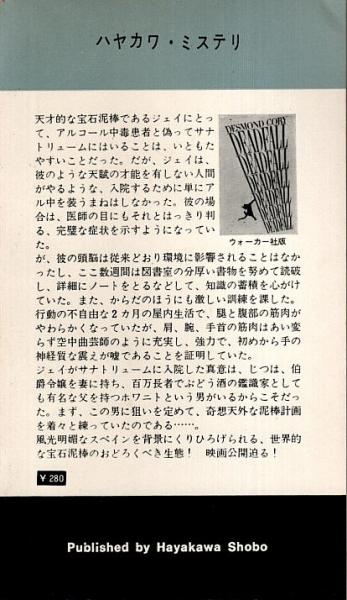 ハヤカワ・ミステリ
天才的な宝石泥棒であるジェイにとっ
て、アルコール中毒患者と偽ってサナ
トリュームにはいることは、いともた
やすいことだった。だが、ジェイは、
彼のような天賦の才能を有しない人間
がやるような、入院するために単にア
ル中を装うまねはしなかった。彼の場
合は、医師の目にもそれとはっきり判
る、完璧な症状を示すようになってい
た。
DESMOND CORY
DEADFALL
DEADFALL
DEADFALL
DEADFALL
ウォーカー社版
が、彼の頭脳は従来どおり環境に影響されることはなか
ったし、ここ数週間は図書室の分厚い書物を努めて読破
し、詳細にノートをとるなどして、知識の蓄積を心がけ
ていた。また、からだのほうにも激しい訓練を課した。
行動の不自由な2カ月の屋内生活で、腿と腹部の筋肉が
やわらかくなっていたが、肩、腕、手首の筋肉はあい変
らず空中曲芸師のように充実し、強力で、初めから手の
神経質な震えが嘘であることを証明していた。
ジェイがサナトリュームに入院した真意は、じつは、伯
爵令嬢を妻に持ち、百万長者でぶどう酒の鑑識家として
も有名な父を持つホワニトという男がいるからこそだっ
た。まず、この男に狙いを定めて、奇想天外な泥棒計画
を着々と練っていたのである……。
風光明媚なスペインを背景にくりひろげられる、世界的
な宝石泥棒のおどろくべき生態!　映画公開迫る!
¥ 280
Published by Hayakawa Shobo